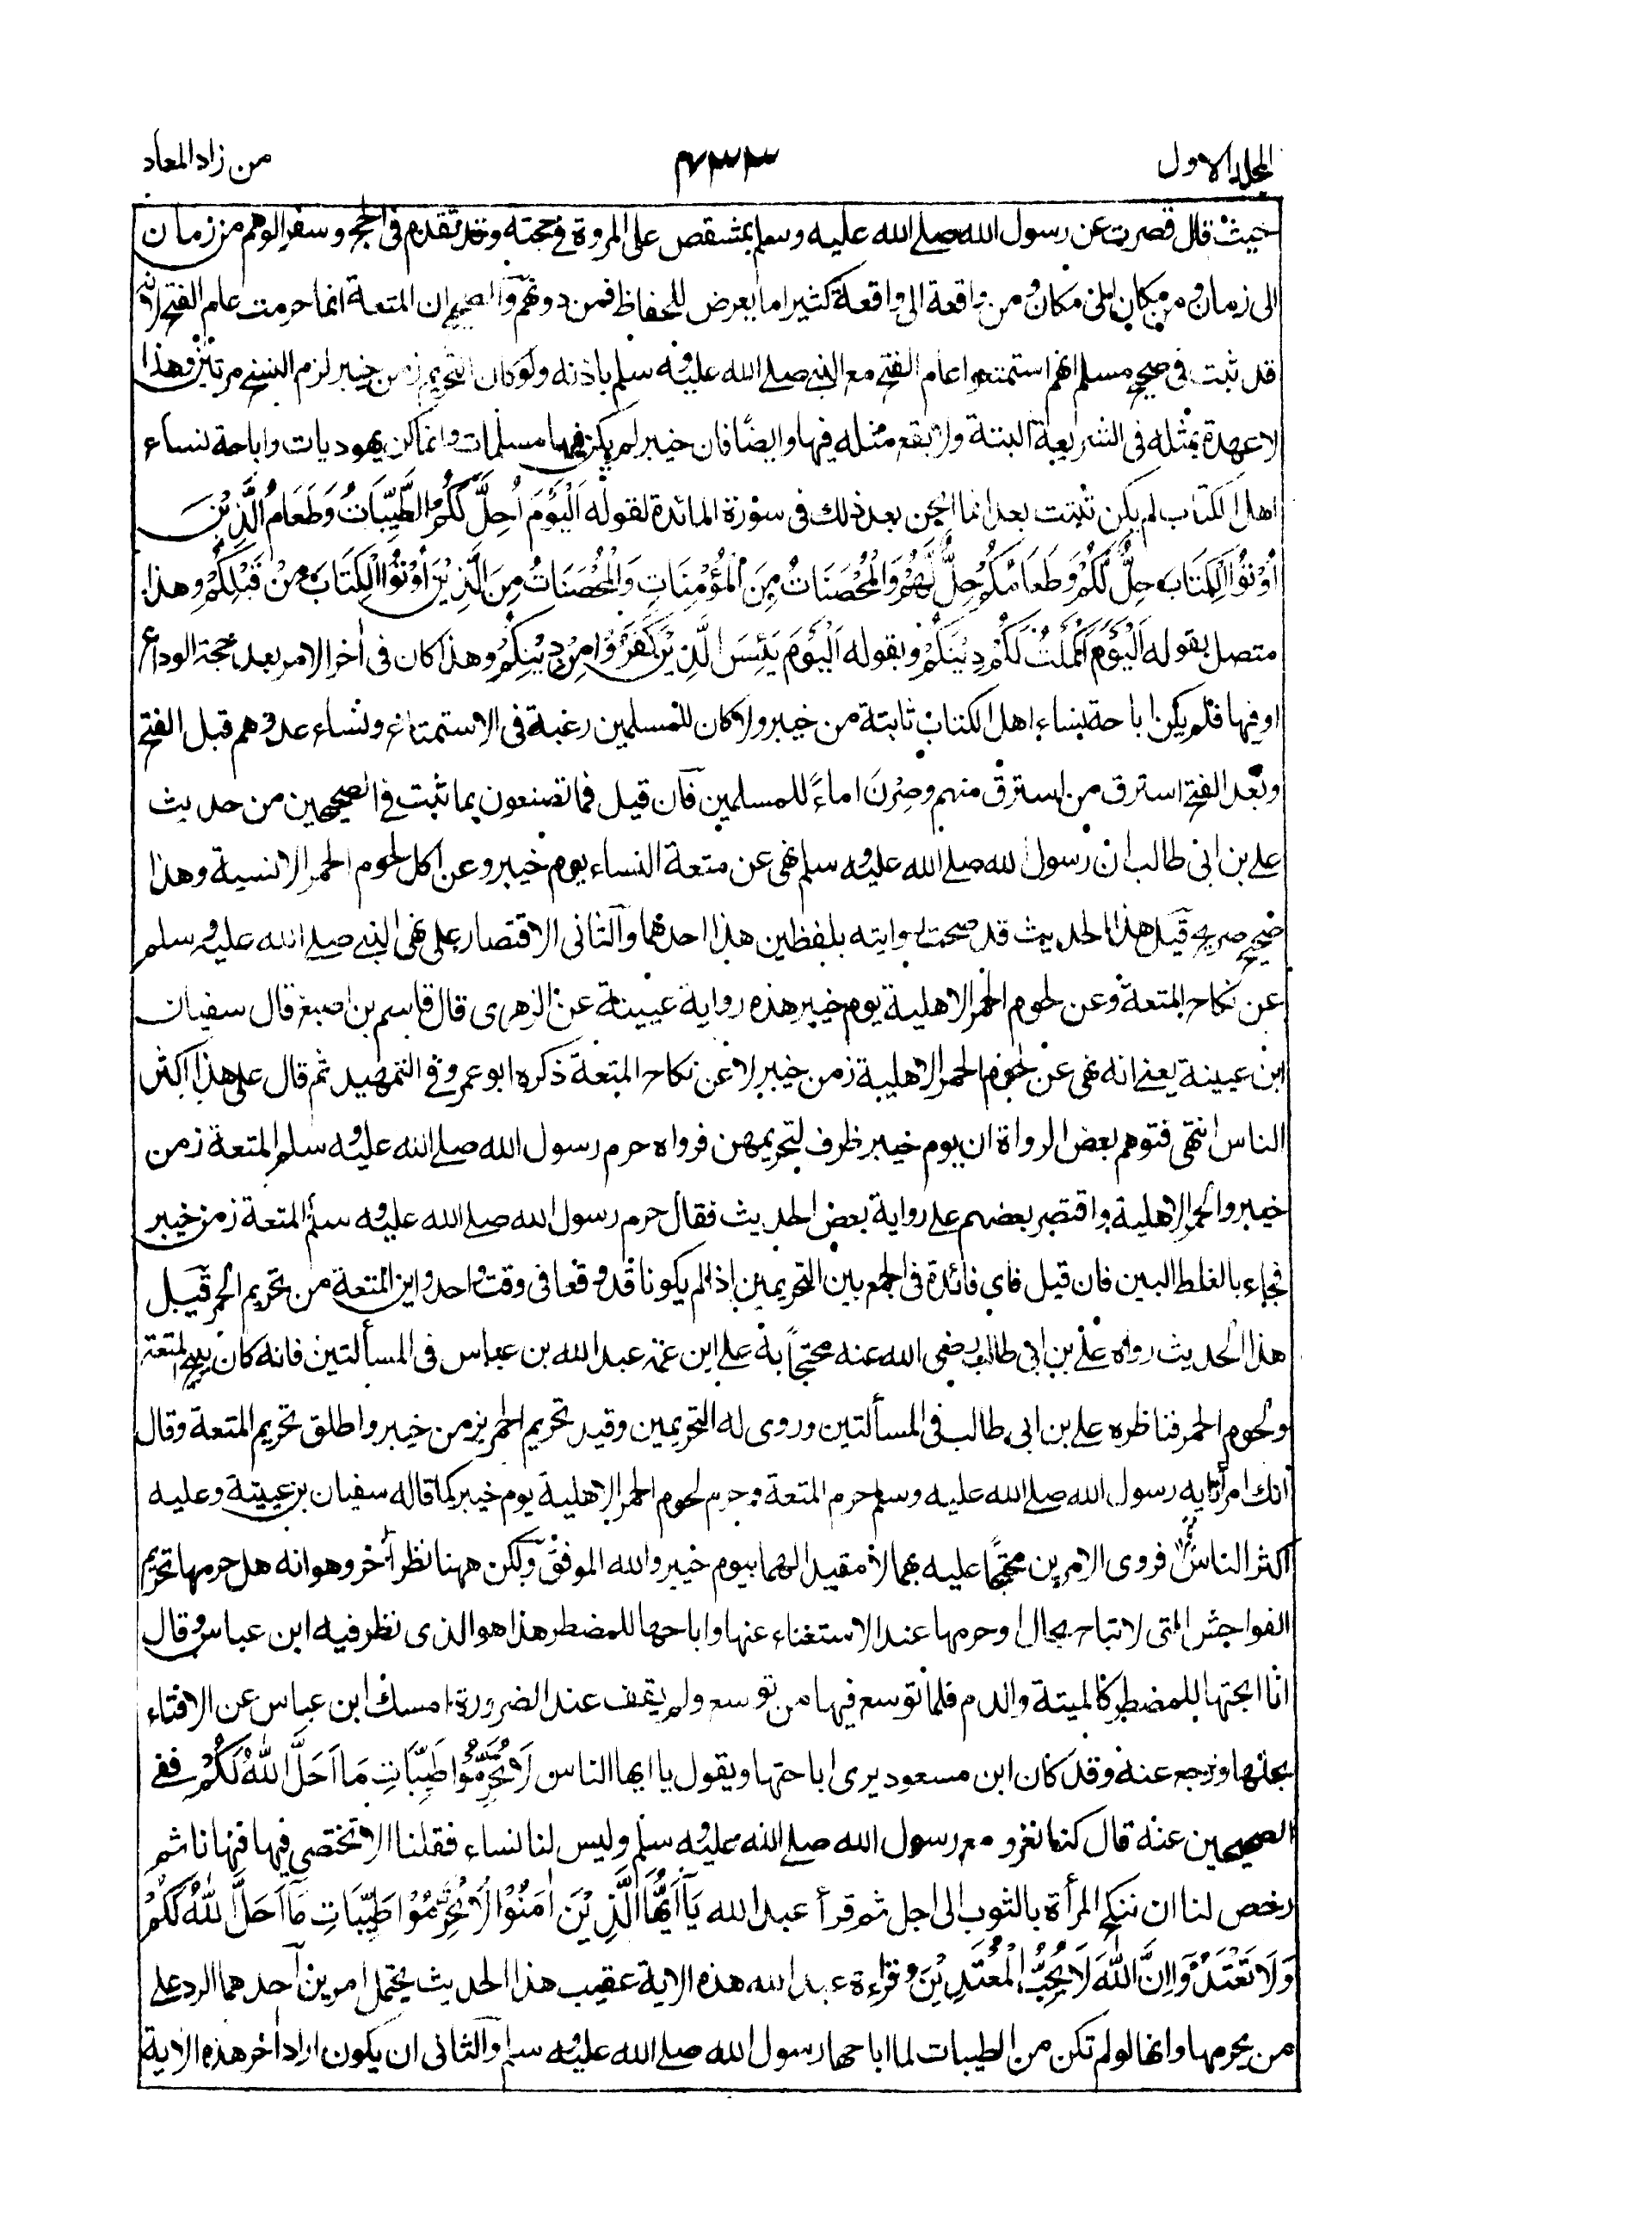 المجلد الاول
۴۳۳
من زاد المعاد
حيث قال قصرت عن رسول الله صلى الله عليه وسلم بمشقص على المروة في حجته وقد تقدم فى الحج وسفر الوهم من زمان
الى زمان ومن مكان الى مكان ومن واقعة الى واقعة كثيرا ما يعرض للحفاظ فمن دونهم والصحيح ان المتعة انما حرمت عام الفتح لانه
قد ثبت فى صحيح مسلم انهم استمتعوا عام الفتح مع النبي صلى الله عليه وسلم باذنه ولو كان التحريم زمن خيبر لزم النسخ مرتين وهذا
لا عهدة بمثله فى الشريعة البتة ولا يقع مثله فيها وايضًا فان خيبر لم يكن فيها مسلمات وانما كن يهوديات واباحة نساء
اهل الكتاب لم يكن ثبتت بعد انما ابحن بعد ذلك فى سورة المائدة لقوله اَلْيَوْمَ اُحِلَّ لَكُمُ الطَّيِّبَاتُ وَطَعَامُ الَّذِيْنَ
اُوْتُوا الْكِتَابَ حِلٌّ لَّكُمْ وَطَعَامُكُمْ حِلٌّ لَّهُمْ وَالْمُحْصَنَاتُ مِنَ الْمُؤْمِنَاتِ وَالْمُحْصَنَاتُ مِنَ الَّذِيْنَ اُوْتُوا الْكِتَابَ مِنْ قَبْلِكُمْ وهذا
متصل بقوله اَلْيَوْمَ اَكْمَلْتُ لَكُمْ دِيْنَكُمْ وبقوله اَلْيَوْمَ يَئِسَ الَّذِيْنَ كَفَرُوْا مِنْ دِيْنِكُمْ وهذا كان فى اٰخر الامر بعد حجة الوداع
او فيها فلم يكن اباحة نساء اهل الكتاب ثابتة من خيبر ولا كان للمسلمين رغبة فى الاستمتاع ونساء عدوهم قبل الفتح
وبعد الفتح استرق من استرق منهم وصِرْنَ اماءً للمسلمين فان قيل فما تصنعون بما ثبت في الصحيحين من حديث
على بن ابى طالب ان رسول الله صلى الله عليه وسلم نهى عن متعة النساء يوم خيبر وعن اكل لحوم الحمر الانسية وهذا
صحيح صريح قيل هذا الحديث قد صحت روايته بلفظين هذا احدهما والثانى الاقتصار على نهى النبي صلى الله عليه وسلم
عن نكاح المتعة وعن لحوم الحمر الاهلية يوم خيبر هذه رواية عيينة عن الزهرى قال قاسم بن اصبغ قال سفيان
ابن عيينة يعنى انه نهى عن لحوم الحمر الاهلية زمن خيبر لا عن نكاح المتعة ذكره ابو عمرو في التمهيد ثم قال على هذا اكثر
الناس انتهى فتوهم بعض الرواة ان يوم خيبر ظرف لتحريمهن فرواه حرم رسول الله صلى الله عليه وسلم المتعة زمن
خيبر والحمر الاهلية واقتصر بعضهم على رواية بعض الحديث فقال حرم رسول الله صلى الله عليه وسلم المتعة زمن خيبر
فجاء بالغلط البين فان قيل فاى فائدة فى الجمع بين التحريمين اذا لم يكونا قد وقعا فى وقت واحد واين المتعة من تحريم الحمر قيل
هذا الحديث رواه على بن ابى طالب رضى الله عنه محتجاً به على ابن عمه عبد الله بن عباس فى المسألتين فانه كان يبيح المتعة
ولحوم الحمر فناظره على بن ابى طالب فى المسألتين وروى له التحريمين وقيد تحريم الحمر بزمن خيبر واطلق تحريم المتعة وقال
انك امرأ تايه رسول الله صلى الله عليه وسلم حرم المتعة وحرم لحوم الحمر الاهلية يوم خيبر كما قاله سفيان بن عيينة وعليه
اكثر الناس فروى الامرين محتجًا عليه بهما لا مقيدا لهما بيوم خيبر والله الموفق ولكن ههنا نظر اٰخر وهو انه هل حرمها تحريم
الفواحش التى لا تباح بحال او حرمها عند الاستغناء عنها واباحها للمضطر هذا هو الذى نظر فيه ابن عباس وقال
انا ابحتها للمضطر كالميتة والدم فلما توسع فيها من توسع ولم يقف عند الضرورة امسك ابن عباس عن الافتاء
بحلها ورجع عنه وقد كان ابن مسعود يرى اباحتها ويقول يا ايها الناس لَا تُحَرِّمُوْا طَيِّبَاتِ مَا اَحَلَّ اللّٰهُ لَكُمْ ففي
الصحيحين عنه قال كنا نغزو مع رسول الله صلى الله عليه وسلم وليس لنا نساء فقلنا الا نختصى فيها فنهانا ثم
رخص لنا ان ننكح المرأة بالثوب الى اجل ثم قرأ عبد الله يَآ اَيُّهَا الَّذِيْنَ اٰمَنُوْا لَا تُحَرِّمُوْا طَيِّبَاتِ مَآ اَحَلَّ اللّٰهُ لَكُمْ
وَلَا تَعْتَدُوْا اِنَّ اللّٰهَ لَا يُحِبُّ الْمُعْتَدِيْنَ وقراءة عبد الله هذه الاية عقيب هذا الحديث يحتمل امرين احدهما الرد على
من يحرمها وانها لو لم تكن من الطيبات لما اباحها رسول الله صلى الله عليه وسلم والثانى ان يكون اراد اٰخر هذه الاٰية